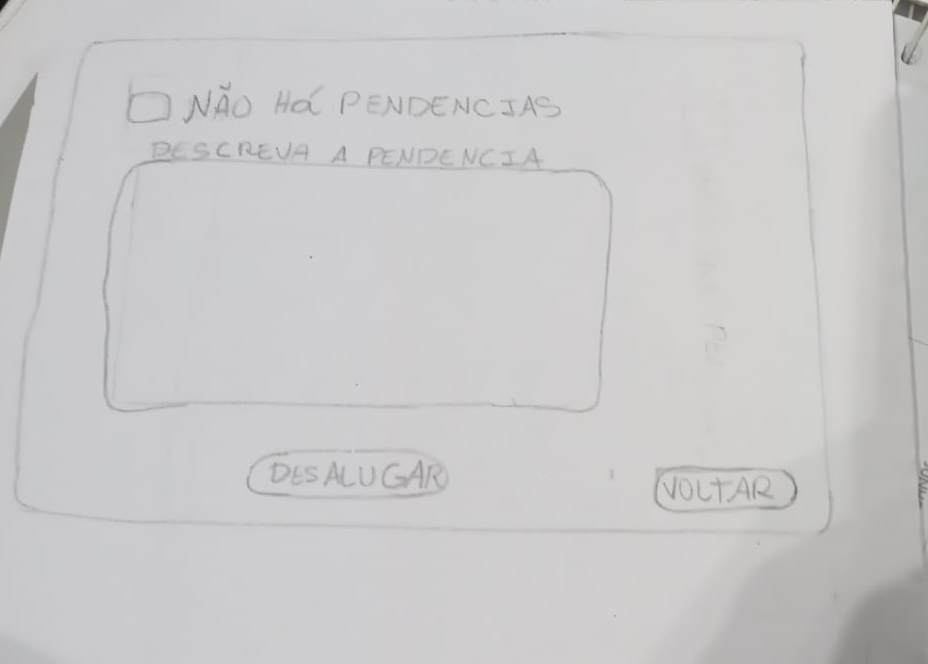 NÃO Há PENDENCIAS
DESCREVA A PENDENCIA
DESALUGAR
VOLTAR